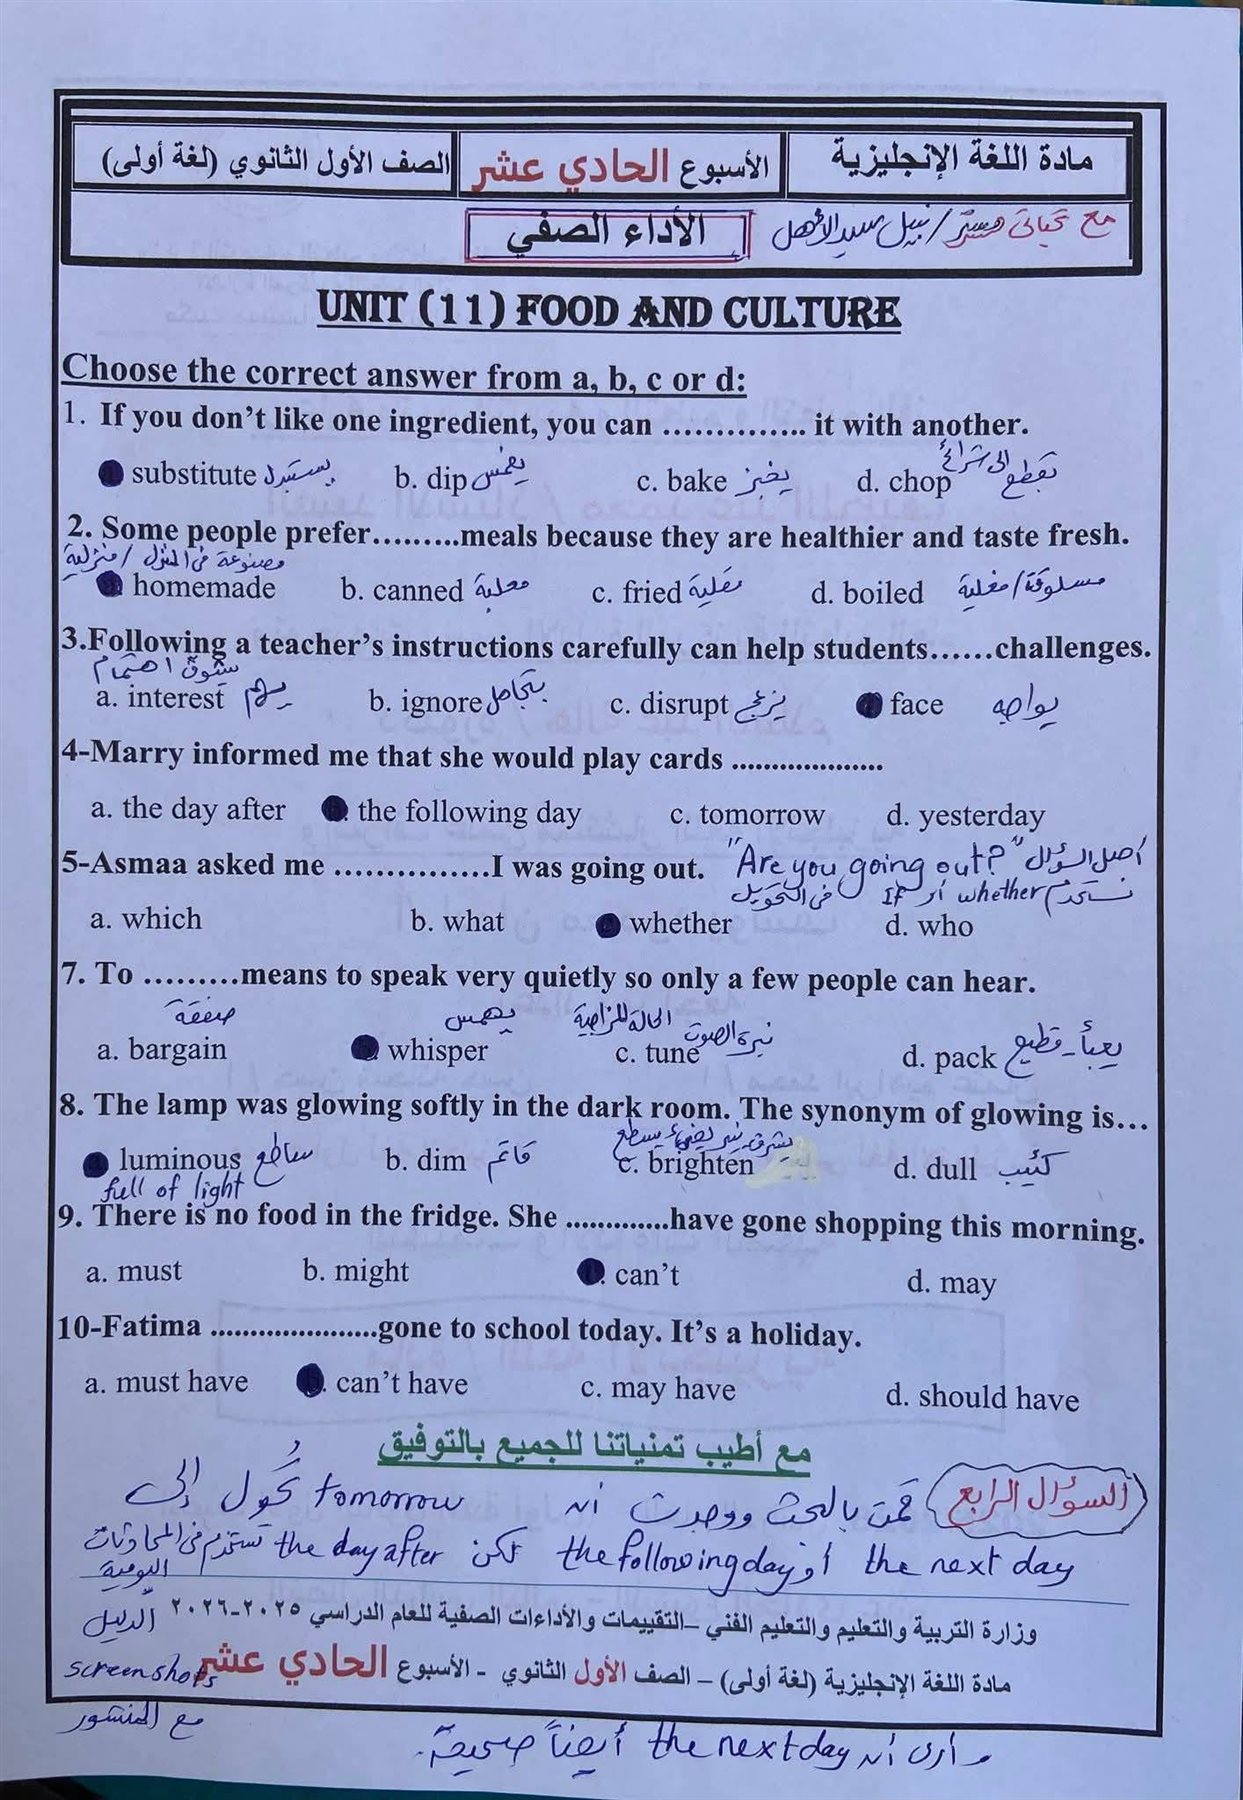 مادة اللغة الإنجليزية
الأسبوع الحادي عشر
الصف الأول الثانوي (لغة أولى)
مع تحياتى مستر/ نبيل سيد الأهل
الأداء الصفي
UNIT (11) FOOD AND CULTURE
Choose the correct answer from a, b, c or d:
1. If you don't like one ingredient, you can ………….. it with another.
substitute يستبدل b. dip يغمس c. bake يخبز d. chop يقطع إلى شرائح
2. Some people prefer………meals because they are healthier and taste fresh.
مصنوعة فى المنزل / منزلية
homemade b. canned معلبة c. fried مقلية d. boiled مسلوقة/مغلية
3.Following a teacher's instructions carefully can help students……challenges.
a. interest يهم b. ignore يتجاهل c. disrupt يزعج face يواجه
4-Marry informed me that she would play cards ...................
a. the day after b. the following day c. tomorrow d. yesterday
5-Asmaa asked me ……………I was going out. "Are you going out?" أصل السؤال
نستخدم whether أو If فى التحويل
a. which b. what whether d. who
7. To ………means to speak very quietly so only a few people can hear.
صفقة يهمس نبرة الصوت
a. bargain whisper c. tune d. pack يعبأ - قطيع
8. The lamp was glowing softly in the dark room. The synonym of glowing is…
luminous ساطع b. dim قاتم c. brighten d. dull كئيب
full of light
9. There is no food in the fridge. She .............have gone shopping this morning.
a. must b. might can't d. may
10-Fatima .....................gone to school today. It's a holiday.
a. must have b. can't have c. may have d. should have
مع أطيب تمنياتنا للجميع بالتوفيق
السؤال الرابع قمت بالبحث ووجدت أن tomorrow تُحول إلى
the next day أو the following day لكن the day after تستخدم فى المحادثات
اليومية
وزارة التربية والتعليم والتعليم الفني –التقييمات والأداءات الصفية للعام الدراسي ٢٠٢٥-٢٠٢٦
الدليل
مادة اللغة الإنجليزية (لغة أولى) – الصف الأول الثانوي - الأسبوع الحادي عشر
screenshots
مع المنشور
وأرى أن the next day أيضاً صحيحة.